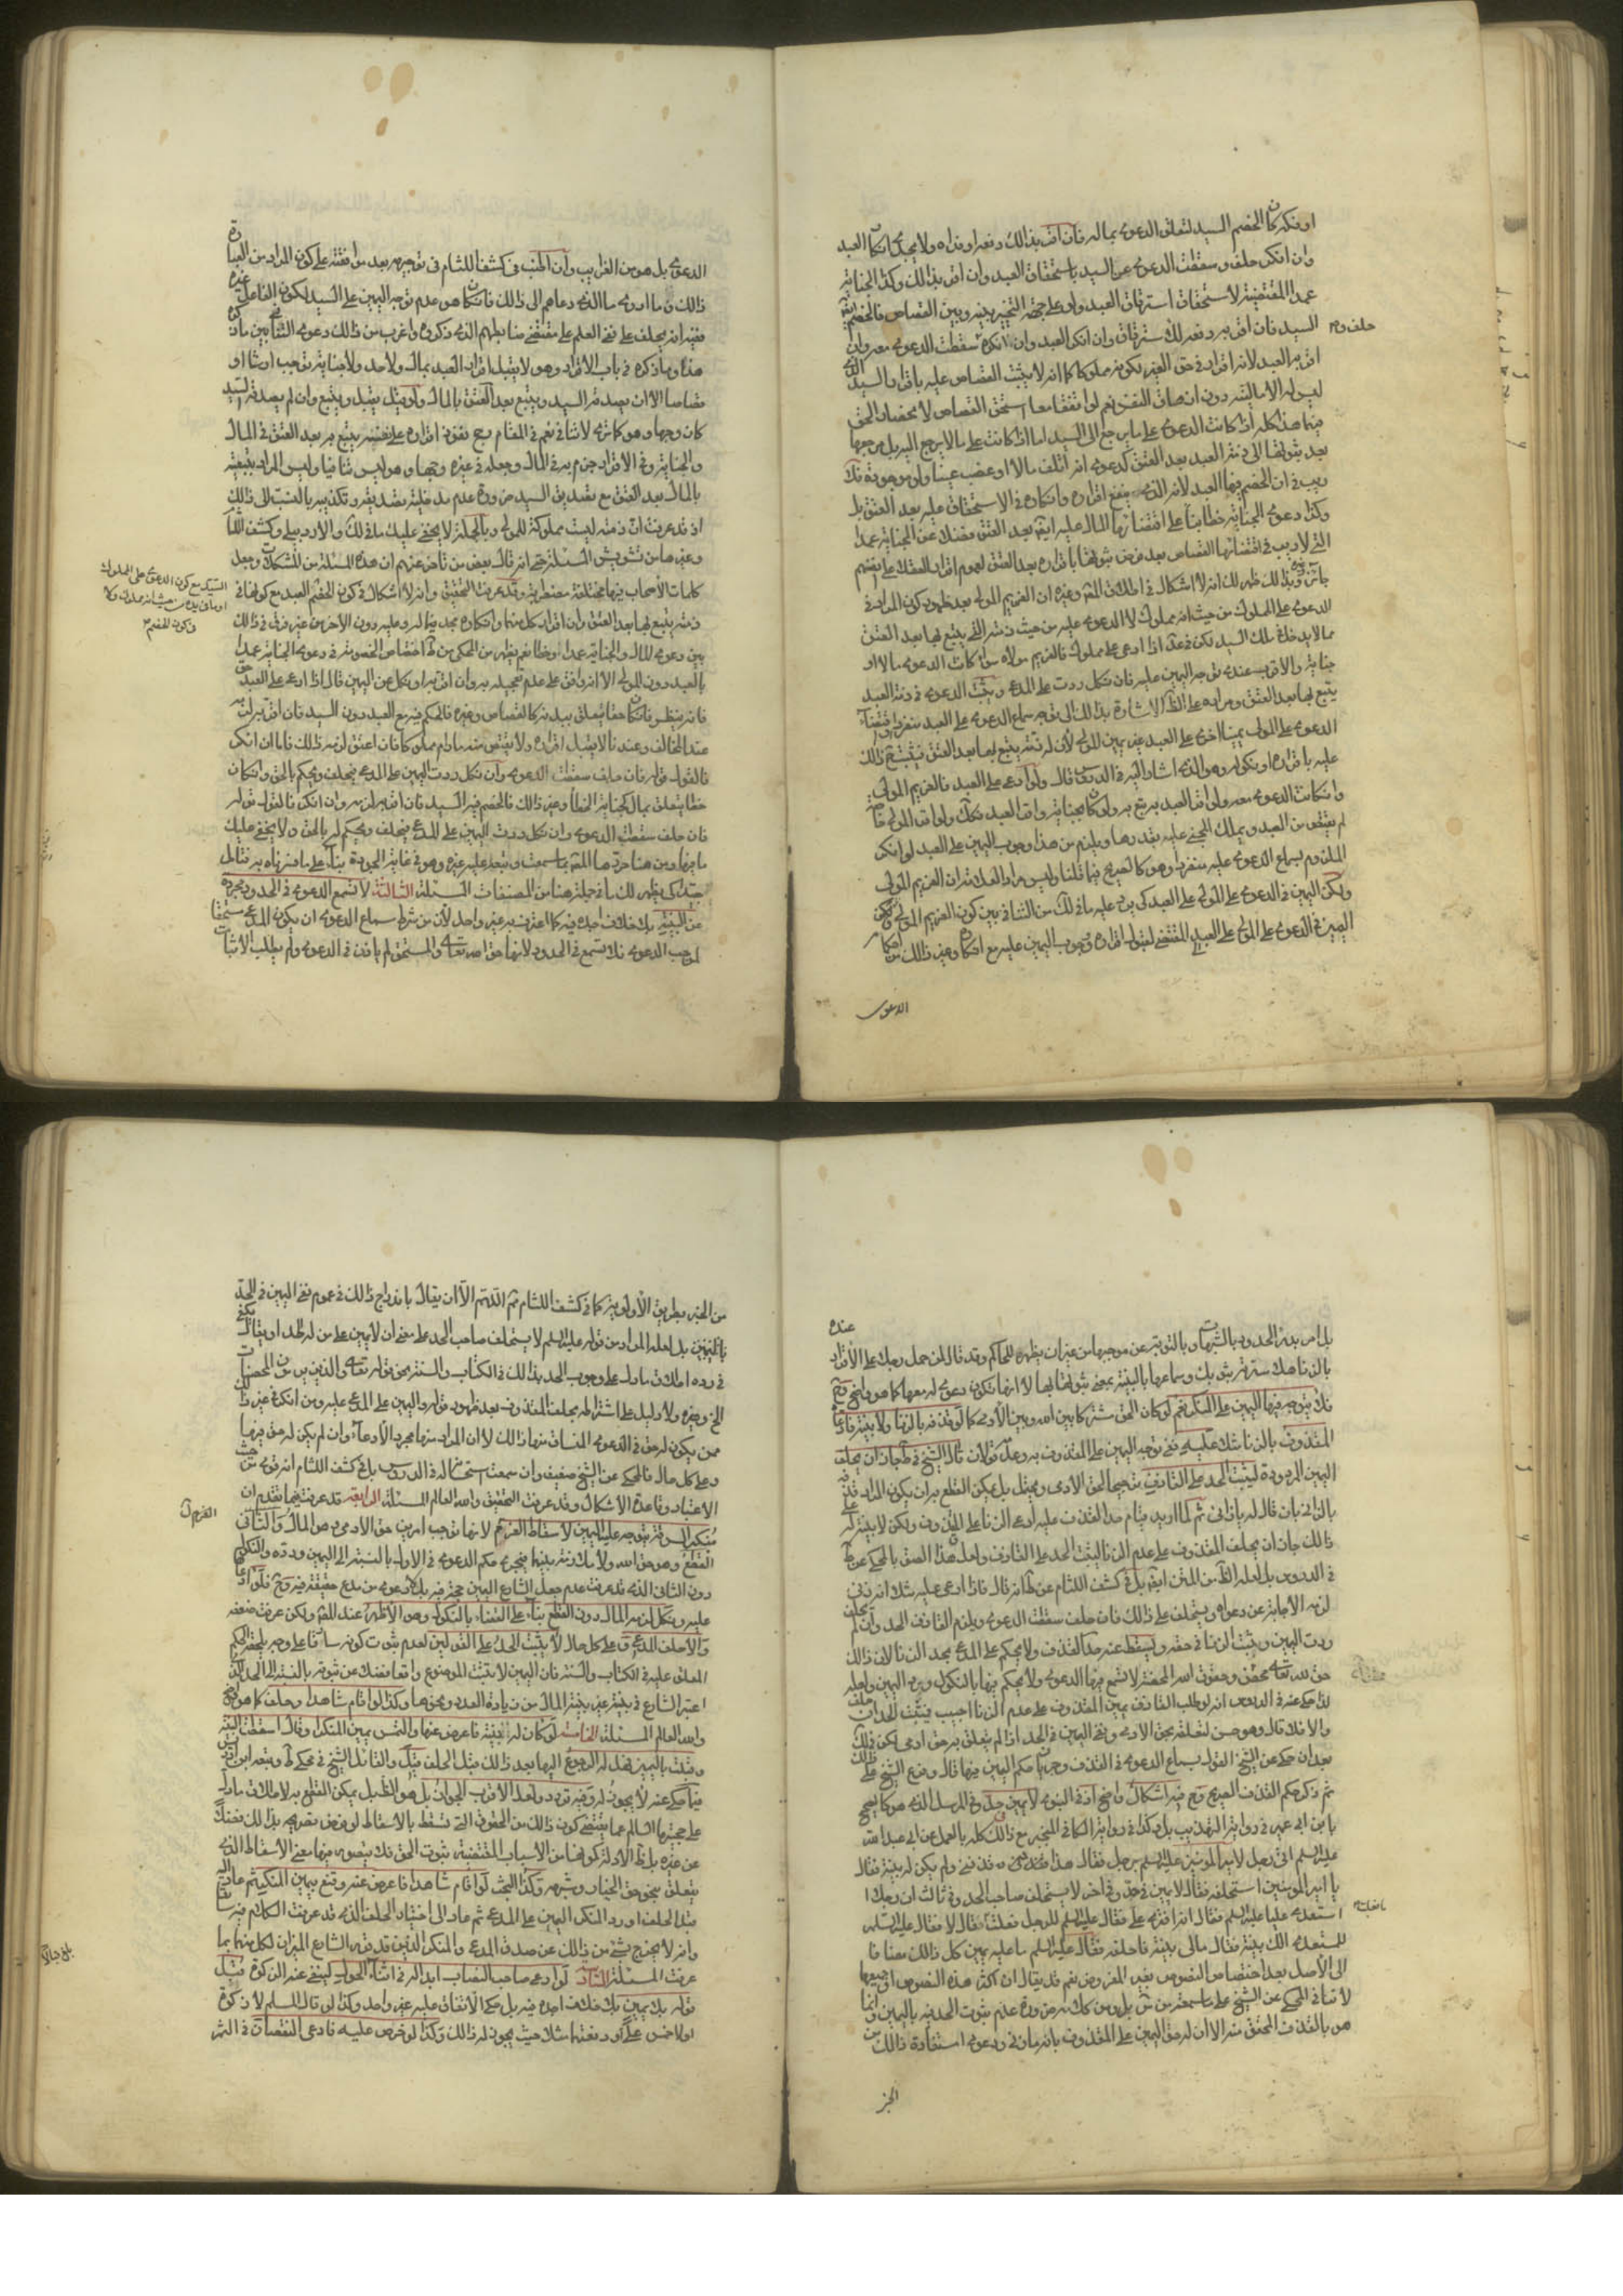 او فكه كان الخصم السيد لتعلق الدعوى بماله فان اقر بذلك دفعه او فداه ولا يجدي انكار العبد
وان انكر حلف وسقطت الدعوى عن السيد باستحقاق العبد وان اقر بذلك وكذا الجناية
عمدا المقتضية لاستحقاق استرقاق العبد ولو على جهة التخيير بينه وبين القصاص فالخصم
السيد فان اقر به دفعه للاسترقاق وان انكر العبد وان انكره سقطت الدعوى معه وان
حلف وم
اقر به العبد لانه اقرار في حق الغير بكونه مملوكا كما انه لا يثبت القصاص عليه باقرار السيد
ليس له الا ماليته دون ازهاق النفس نعم لو اتفقا معا استحق القصاص لانحصار الحق
فيهما هذا كله اذا كانت الدعوى على ما يرجع الى السيد اما اذا كانت على ما لا يرجع اليه بل مرجعها
بعد ثبوتها الى ذمة العبد بعد العتق كدعوى انه اتلف مالا او غصب عينا ولو موجودة فلا
ريب في ان الخصم فيها العبد لانه الذي ينفع اقراره وانكاره في الاستحقاق عليه بعد العتق بل
وكذا دعوى الجناية خطأ بناء على اقتضائها المال عليه ايضا بعد العتق فضلا عن الجناية عمدا
التي لا ريب في اقتضائها القصاص بعد فرض ثبوتها باقراره بعد العتق لعموم اقرار العقلاء على انفسهم
جائز وبذلك ظهر لك انه لا اشكال في اطلاق المصنف وغيره ان الغريم المولى بعد ظهور كون المراد في
الدعوى على المملوك من حيث انه مملوك لا الدعوى عليه من حيث ذمته التي يتبع بها بعد العتق
مما لا يدخل في ملك السيد لكن في عد اذا ادعى على مملوك فالغريم مولاه سواء كانت الدعوى مالا او
جناية والاقرب عندي توجه اليمين عليه فان نكل ردت على المدعي وتثبت الدعوى في ذمة العبد
يتبع بها بعد العتق ومراده على الظاهر الاشارة بذلك الى توجه سماع الدعوى على العبد منفردا
الدعوى على المولى يمينا اخرى على العبد غير يمين المولى لان له ذمة يتبع بها بعد العتق فيتبع ذلك
عليه باقراره او نكوله وهو الذي اشار اليه في الدروس قال ولو ادعى على العبد فالغريم المولى
وان كانت الدعوى معه ولو اقر العبد به تبع به ولو كان بجناية واقر العبد فكذلك ولو اقر المولى خاصة
لم يقتص من العبد ويملك المجني عليه بقدرها ويلزم من هذا وجوب اليمين على العبد لو انكر
الملزوم لسماع الدعوى عليه منفردا وهو كالصريح فيما قلنا وليس مراد العلامة ان الغريم المولى
ولكن اليمين في الدعوى على المولى على العبد كي يرد عليه ما في ذلك من التنافي بين كون الغريم المولى وكون
اليمين في الدعوى على المولى على العبد المقتضي لقبول اقراره وتوجه اليمين عليه مع انكاره وغير ذلك من احكام
الدعوى
الدعوى بل هو من الغرايب وان اطنب في كشف اللثام في توجيهه بعد موافقته على كون المراد من العبارة
ذلك وما ادري ما الذي دعاهم الى ذلك فان كان هو عدم توجه اليمين على السيد لكون الفاعل غيره
ففيه انه يحلف على نفي العلم على مقتضى ضابطهم الذي ذكروه واغرب من ذلك دعوى التنافي بين ما ذكروه
هنا وما ذكره في باب الاقرار وهو لا يقبل اقرار العبد بمال ولا حد ولا جناية توجب ارشا او
قصاصا الا ان يصدقه السيد ويتبع بعد العتق بالمال ولو قيل يقبل ويتبع وان لم يصدقه السيد
كان وجها وهو كما ترى لا تنافي نعم في المقام مع نفوذ اقراره على نفسه يتبع به بعد العتق في المال
والجناية وفي الاقرار جزم به في المال وجعله في غيره وجها وهو ليس تنافيا وليس المراد تبعيته
بالمال بعد العتق مع تصديق السيد ضرورة عدم مدخلية تصديقه وتكذيبه بالنسبة الى ذلك
اذ قد عرفت ان ذمته ليست مملوكة للمولى وبالجملة لا يخفى عليك ما في لك والاردبيلي وكشف اللثام
وغيرها من تشويش المسئلة حتى انه قال بعض من تاخر عنهم ان هذه المسئلة من المشكلات وجعل
كلمات الاصحاب فيها مختلفة مضطربة وقد عرفت التحقيق وانه لا اشكال في كون الخصم العبد مع كونها في
السيد مع كون الدعوى على المملوك
او ما في يده من حيث انه مملوك ولا
في كون الخصم م
ذمته يتبع بها بعد العتق وان اقرار كل منهما وانكاره يجدي فيما له وعليه دون الاخر من غير فرق في ذلك
بين دعوى المال والجناية عمدا او خطأ نعم يظهر من المحكي من ط اختصاص الخصومة في دعوى الجناية عمدا
بالعبد دون المولى الا انه وافق على عدم تعجيله به وان اقر به او نكل عن اليمين قال اذا ادعي على العبد حق
فانه ينظر فان كان حقا يتعلق ببدنه كالقصاص وغيره فالحكم فيه مع العبد دون السيد فان اقر به لزمه
عند المخالف وعندنا لا يقبل اقراره ولا يقتص منه ما دام مملوكا فان اعتق لزمه ذلك فاما ان انكر
فالقول قوله فان حلف سقطت الدعوى وان نكل ردت اليمين على المدعي فيحلف ويحكم بالحق وان كان
حقا يتعلق بمال كجناية الخطأ وغير ذلك فالخصم فيه السيد فان اقر به لزمه وان انكر فالقول قوله
فان حلف سقطت الدعوى وان نكل ردت اليمين على المدعي فيحلف ويحكم له بالحق ولا يخفى عليك
ما فيها ومن هنا حررها المصنف بما سمعت وتبعه عليه غيره وهو في غاية الجودة بناء على ما فسرناه به فتامل
جيدا كي يظهر لك ما في جملة هنا من المصنفات المسئلة الثالثة لا تسمع الدعوى في الحدود مجردة
عن البينة بلا خلاف اجده فيه كما اعترف به غير واحد لان من شرط سماع الدعوى ان يكون المدعي مستحقا
لموجب الدعوى فلا تسمع في الحدود لانها حق الله تعالى والمستحق لم ياذن في الدعوى ولم يطلب الاثبات
بل امر بدرء الحدود بالشبهات وبالتوبة عن موجبها من غير ان يظهره للحاكم وقد قال لمن حمل رجلا على الاقرار
عنده
بالزنا هلا سترته بثوبك وسماعها بالبينة بمعنى ثبوتها بها لا انها تكون دعوى له معها كما هو واضح وح
فلا يتوجه فيها اليمين على المنكر نعم لو كان الحق مشتركا بين الله وبين الادمي كما لو قذفه بالزنا ولا بينة فادعا
المقذوف بالزنا شك عليه ففي توجه اليمين على المقذوف به وعدمه قولان قال الشيخ في ط جاز ان يحلف
اليمين المردودة ليثبت الحد على القاذف ترجيحا لحق الادمي ويحتمل بل يمكن القطع به ان يكون المراد قذفه
بالزنا بان قال له يا زاني ثم لما اريد قيام حد القذف عليه ادعى الزنا على المقذوف ولكن لا بينة له على
ذلك جاز ان يحلف المقذوف على عدم الزنا ليثبت الحد على القاذف ولعل هذا الصق بالمحكي عن ط
في الدروس بل لعله الظاهر من المتن ايضا بل في كشف اللثام عن ط انه قال فاذا ادعى عليه شك انه زنى
لزمه الاجابة عن دعواه ويستحلف على ذلك فان حلف سقطت الدعوى ويلزم القاذف الحد وان لم يحلف
ردت اليمين ويثبت الزنا في حقه ويسقط عنه حد القذف ولا يحكم على المدعي بحد الزنا لان ذلك
حق لله تعالى محض وحقوق الله المحضة لا تسمع فيها الدعوى ولا يحكم فيها بالنكول ورد اليمين ولعله
لذا حكى عنه في الدروس انه لو طلب القاذف يمين المقذوف على عدم الزنا اجيب فيثبت الحد ان حلف
والا فلا قال وهو حسن لتعلقه بحق الادمي ونفي اليمين في الحد اذا لم يتعلق به حق ادمي لكن في لك
بعد ان حكى عن الشيخ القول بسماع الدعوى في القذف وجريان حكم اليمين فيها قال وفرع الشيخ على ذلك
ثم ذكر حكم القذف الصريح وح فيه اشكال واضح اذ في النبوي لا يمين في حد وفي المرسل الذي هو كالصحيح
بابن ابي عمير في رواية التهذيب بل وكذا في رواية الكافي المنجبر مع ذلك كله بالعمل عن ابي عبد الله
عليه السلم اتى رجل لامير المؤمنين عليه السلم برجل فقال هذا قد قذفني ولم يكن له بينة فقال
يا امير المؤمنين استحلفه فقال لا يمين في حد وفي اخر لا يستحلف صاحب الحد وفي ثالث ان رجلا
استعدى عليا عليه السلم فقال انه افترى علي فقال عليه السلم للرجل فعلت فقال لا فقال عليه السلم
للمستعدي الك بينة فقال مالي بينة فاحلفه فقال عليه السلم ما عليه يمين كل ذلك مضافا
الى الاصل بعد اختصاص النصوص بغير المفروض نعم قد يقال ان اكثر هذه النصوص او جميعها
لا تنافي المحكي عن الشيخ على ما سمعته من ش بل ومن كلامه ضرورة عدم ثبوت الحد فيه باليمين وانما
هو بالقذف المحقق منه الا ان له حق اليمين على المقذوف بانه ما زنى ودعوى استفادة ذلك من
الخبر
من الخبر بطريق الاولوية كما في كشف اللثام ثم اللهم الا ان يقال باندراج ذلك في عموم نفي اليمين في الحد
بل لعله المراد من قوله عليه السلم لا يستحلف صاحب الحد على معنى ان لا يمين على من له الحد او يقال يكفي
في رده اطلاق ما دل على وجوب الحد بذلك في الكتاب والسنة نحو قوله تعالى والذين يرمون المحصنات
الخ وغيره ولا دليل على اشتراطه بحلف المقذوف بعد ظهور قوله واليمين على المدعى عليه ومن انكر في غير ذلك
ممن يكون له حق في الدعوى المنساق منها ذلك لا ان المراد منها مجرد الادعاء وان لم يكن له حق فيها
وعلى كل حال فالمحكي عن الشيخ ضعيف وان سمعت استحسانه في الدروس بل في كشف اللثام انه قوي من حيث
الاعتبار وقاعدة الاشكال وقد عرفت التحقيق والله العالم المسئلة الرابعة قد عرفت فيما تقدم ان
منكر السرقة يتوجه عليه اليمين لاسقاط الغرم لانها توجب امرين حق الادمي وهو المال والثاني
الغرم ل
القطع وهو حق الله ولا ملازمة بينهما فيجري حكم الدعوى في الاول بالنسبة الى اليمين ورده والنكول
دون الثاني الذي قد عرفت عدم جعل الشارع اليمين حجة فيه بل لا دعوى من مدع حقيقة فيه وح فلو ادعاها
عليه ونكل لزمه المال دون القطع بناء على القضاء بالنكول وهو الاظهر عند المصنف ولكن عرفت ضعفه
والا حلف المدعي وعلى كل حال لا يثبت الحد على القولين لعدم ثبوت كونه سارقا على وجه يلحقه الحكم
المعلق عليه في الكتاب والسنة فان اليمين لا يثبت الموضوع واقعا فضلا عن ثبوته بالنسبة الى الحد الذي
اعتبر الشارع في بينته غير بينة المال من زيادة العدد ونحوها وكذا لو اقام شاهدا وحلف كما هو واضح
والله العالم المسئلة الخامسة لو كان له بينة فاعرض عنها والتمس يمين المنكر او قال اسقطت البينة
وقنعت باليمين فهل له الرجوع اليها بعد ذلك قبل الحلف قيل والقائل الشيخ في محكي ط وتبعه ابن ادريس
فيما حكي عنه لا يجوز له وفيه تردد ولعل الاقرب الجواز بل هو الظاهر بل يمكن القطع به لاطلاق ما دل
على حجيتها السالم عما يقتضي كون ذلك من الحقوق التي تسقط بالاسقاط لو فرض تصريحه بذلك فضلا
عن غيره بل ظاهر الادلة كونها من الاسباب المقتضية ثبوت الحق فلا يتصور فيها معنى الاسقاط الذي
يتعلق بنحو حق الخيار وشبهه وكذا البحث لو اقام شاهدا فاعرض عنه وقنع بيمين المنكر ثم عاد اليه
قبل الحلف او رد المنكر اليمين على المدعي ثم عاد الى اختيار الحلف الذي قد عرفت الكلام فيه سابقا
وانه لا يخرج بشئ من ذلك عن صدق المدعي والمنكر الذين قد قرر الشارع الميزان لكل منهما بما
عرفت المسئلة السادسة لو ادعى صاحب النصاب ابداله في اثناء الحول لينفي عنه الزكوة قبل
قوله بلا يمين بلا خلاف اجده فيه بل حكى الاتفاق عليه غير واحد وكذا لو قال المسلم لا زكوة
او لا خمس علي او دفعتها مثلا حيث يجوز له ذلك وكذا لو خرص عليه فادعى النقصان في الثمر